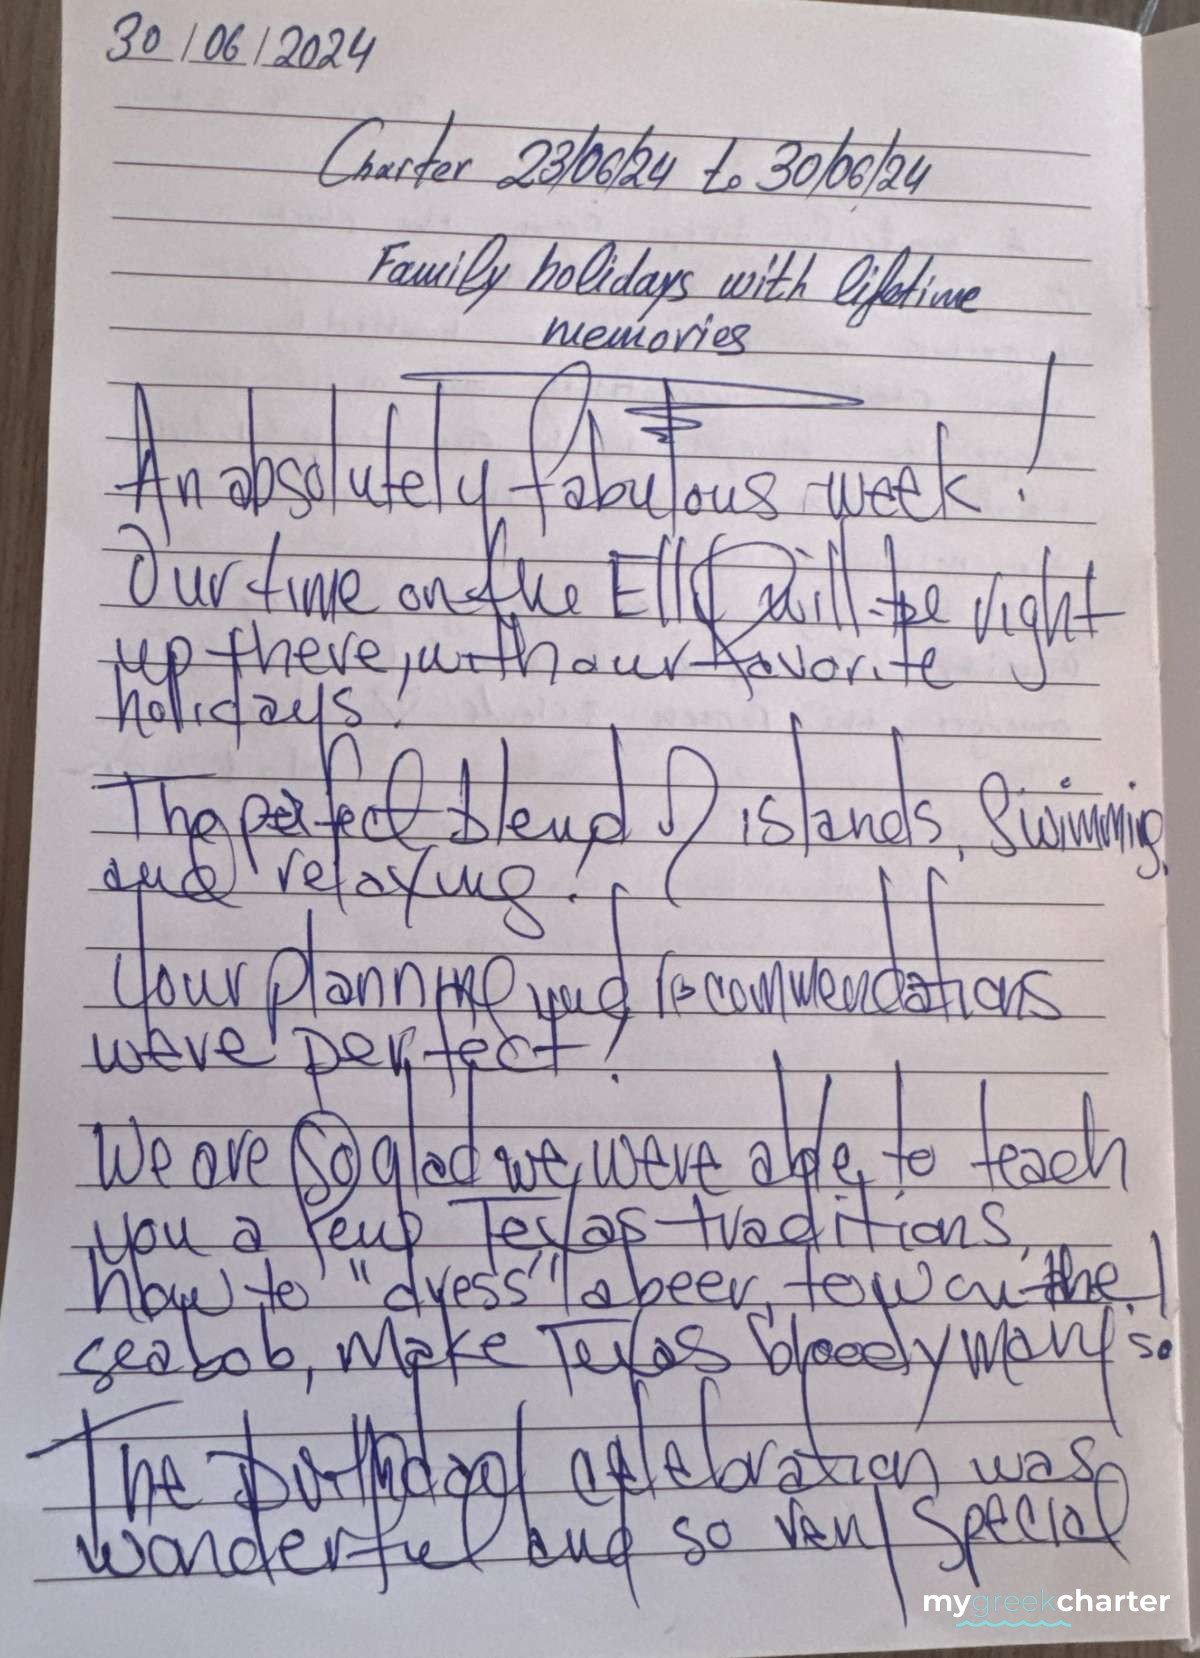 30/06/2024
Charter 23/06/24 to 30/06/24
Family holidays with lifetime
memories
An absolutely fabulous week!
Our time on the Elli will be right
up there, with our favorite
holidays.
The perfect blend of islands, swimming,
and relaxing!
Your planning and recommendations
were perfect!
We are so glad we were able to teach
you a few Texas traditions,
how to "dress" a beer, tow on the
seabob, make Texas bloody mary's
The birthday celebration was
wonderful and so very special
mygreekcharter